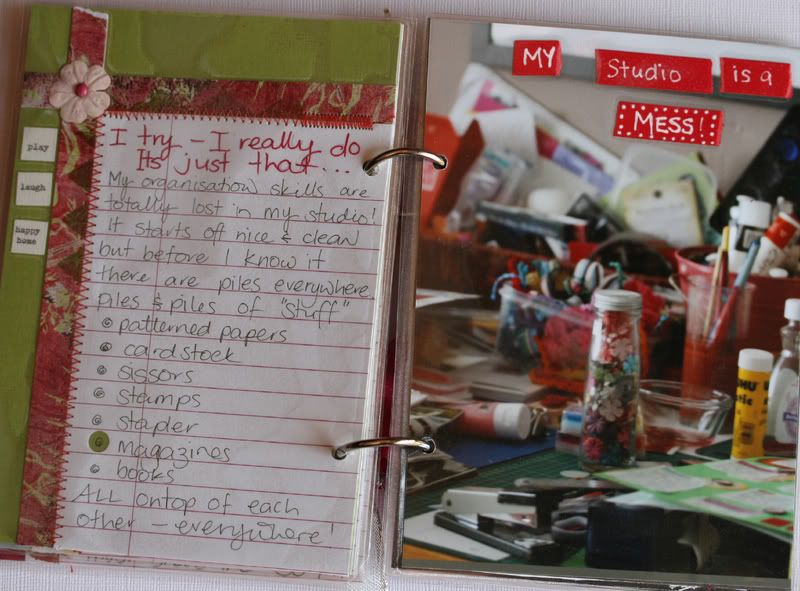 play
laugh
happy
home
I try - I really do
Its just that...
My organisation skills are
totally lost in my studio!
It starts off nice & clean
but before I know it
there are piles everywhere
piles & piles of "stuff"
patterned papers
cardstock
sissors
stamps
stapler
magazines
books
ALL ontop of each
other - everywhere!
MY Studio is a
MESS!